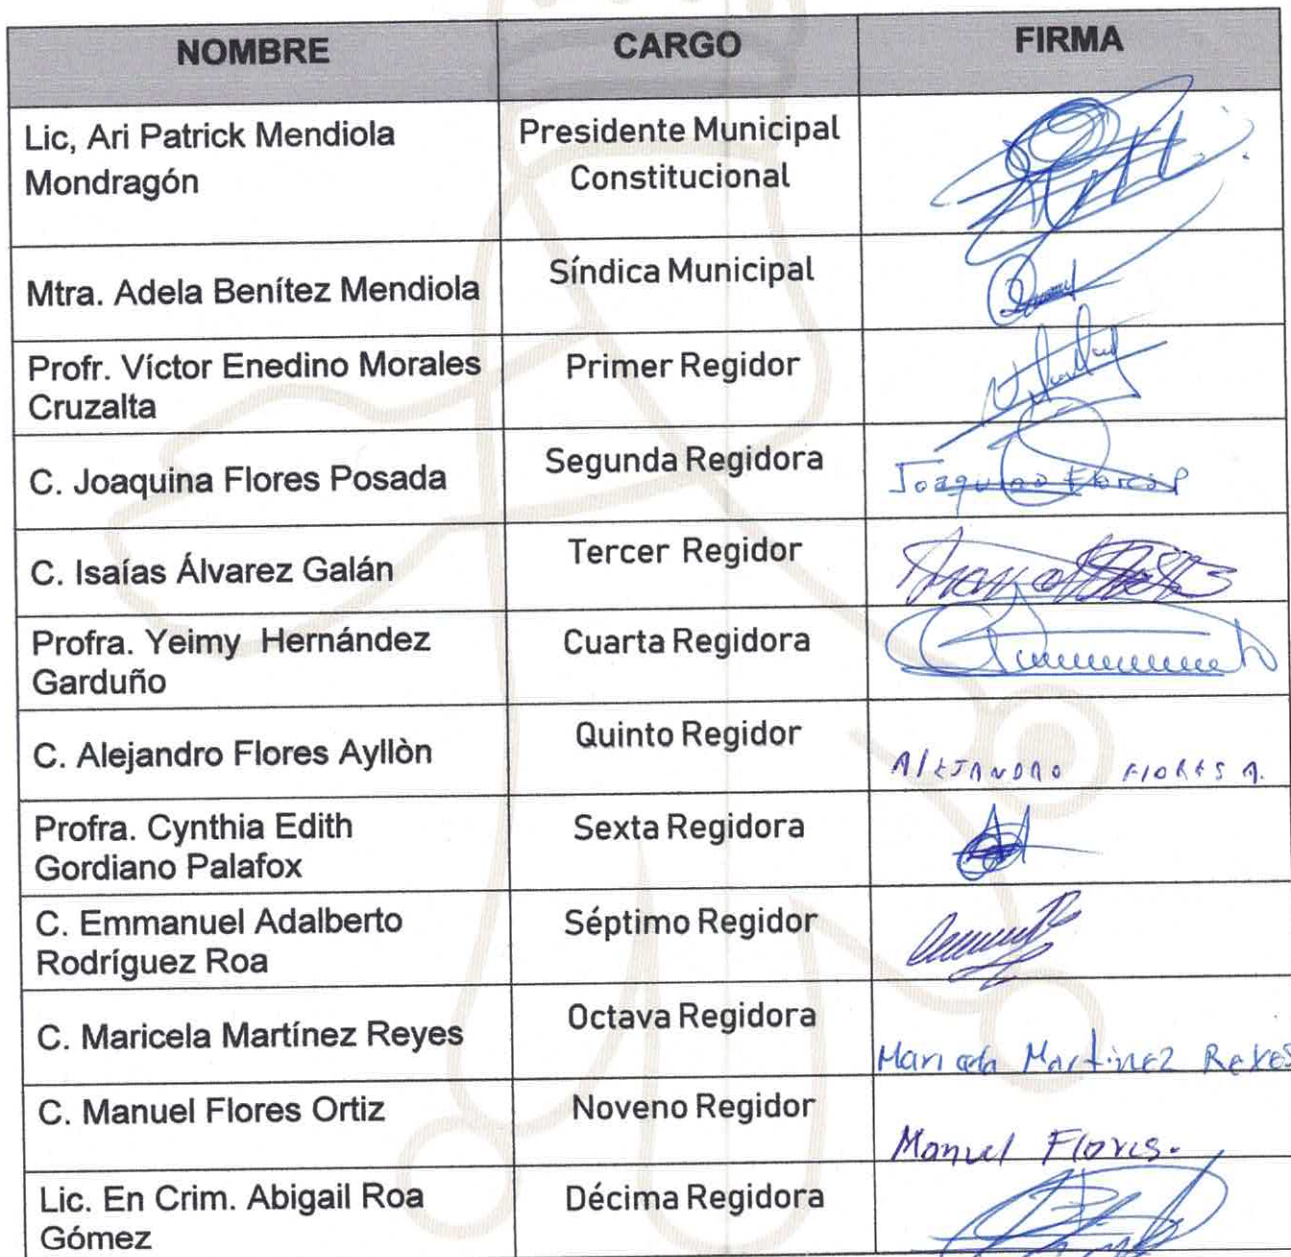 NOMBRE CARGO FIRMA
Lic, Ari Patrick Mendiola
Mondragón
Presidente Municipal
Constitucional
Mtra. Adela Benítez Mendiola
Síndica Municipal
Profr. Víctor Enedino Morales
Cruzalta
Primer Regidor
C. Joaquina Flores Posada
Segunda Regidora
C. Isaías Álvarez Galán
Tercer Regidor
Profra. Yeimy Hernández
Garduño
Cuarta Regidora
C. Alejandro Flores Ayllòn
Quinto Regidor
AlEJANDRO FlORES A.
Profra. Cynthia Edith
Gordiano Palafox
Sexta Regidora
C. Emmanuel Adalberto
Rodríguez Roa
Séptimo Regidor
C. Maricela Martínez Reyes
Octava Regidora
Maricela Martinez Reyes
C. Manuel Flores Ortiz
Noveno Regidor
Manuel Flores.
Lic. En Crim. Abigail Roa
Gómez
Décima Regidora